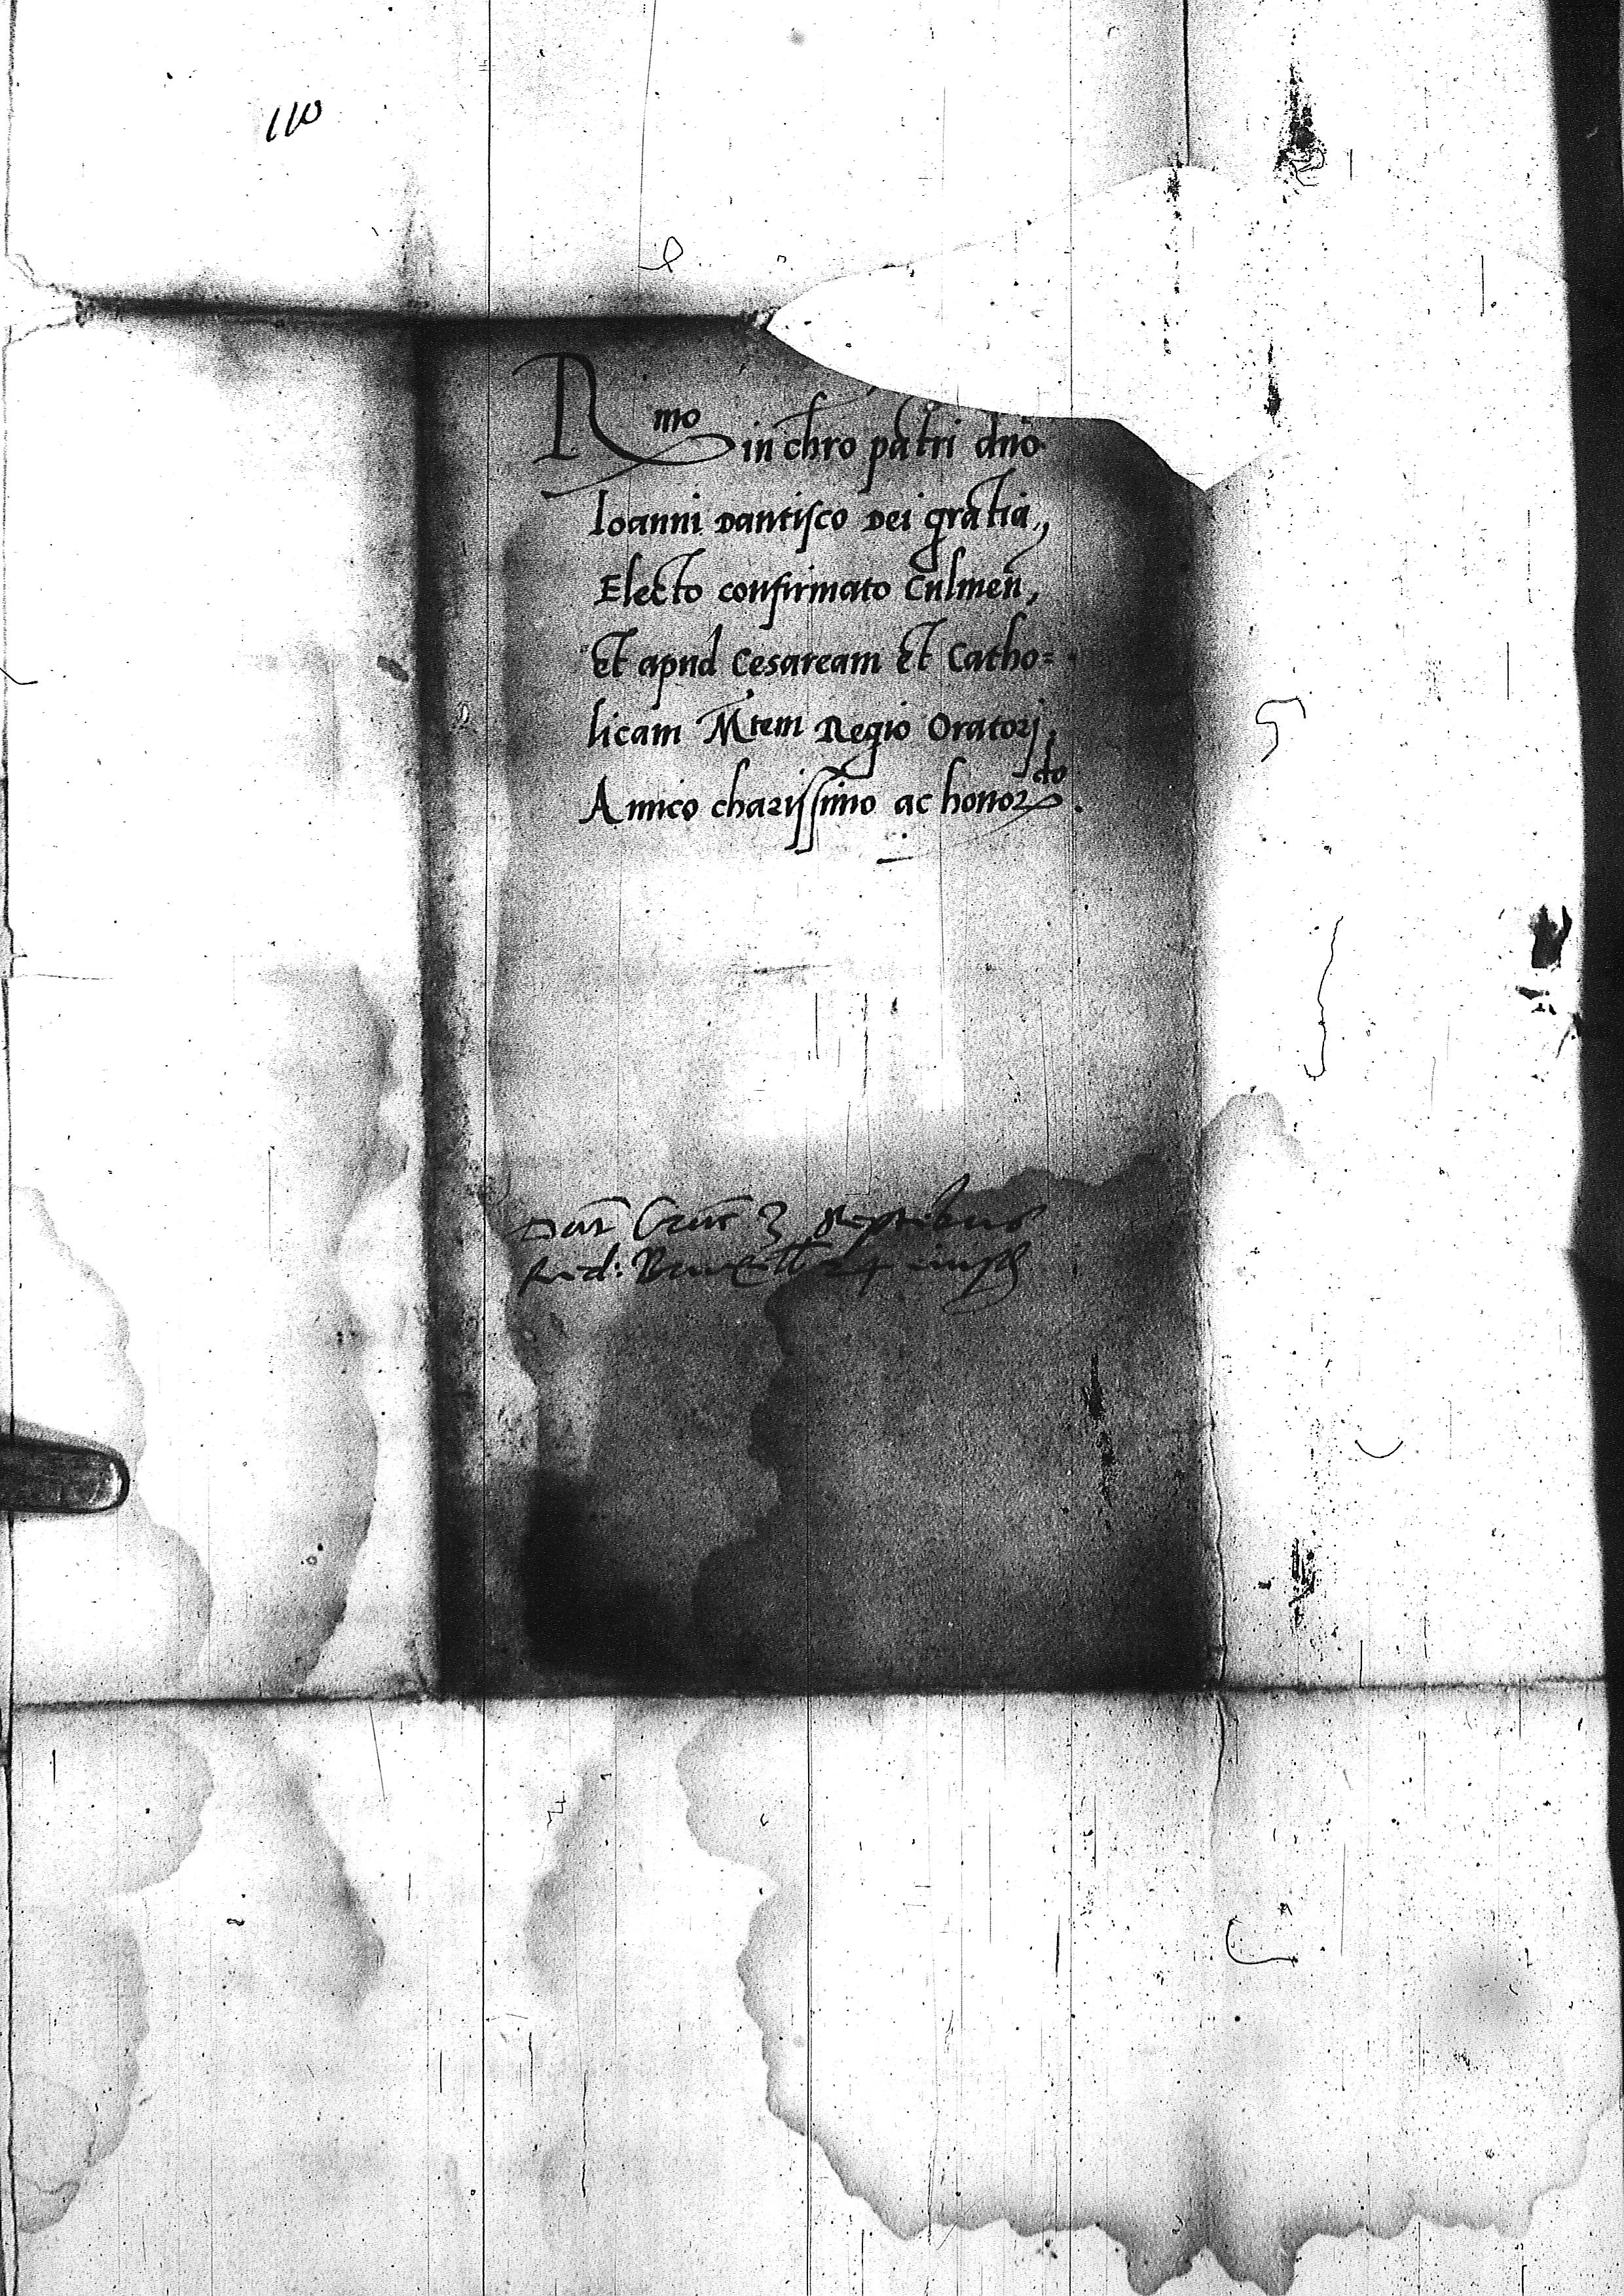 110
Rmo in chro patri dno
Ioanni Dantisco Dei gratia,
Electo confirmato Culmen,
Et apud Cesaream Et Catho=
licam Mtem Regio Oratorj,
Amico charissimo ac honordo.
Dat Crac 3 Septembris
Red: 24 eiusd